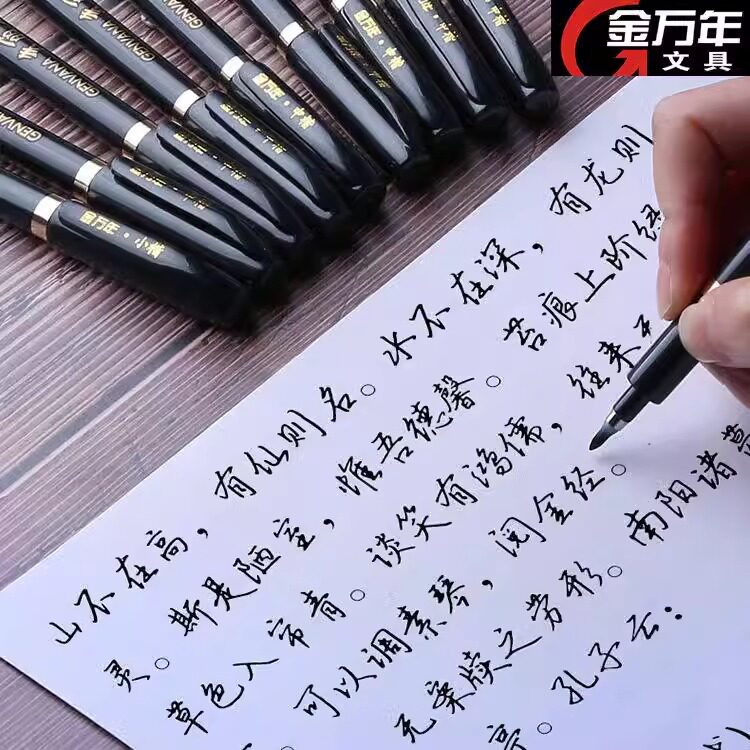 金万年
文具
GENVANA
GENVANA
GENVANA
金万年·中楷
金万年·小楷
山不在高，有仙则名。水不在深，有龙则
灵。斯是陋室，惟吾德馨。苔痕上阶绿
草色入帘青。谈笑有鸿儒，往来
可以调素琴，阅金经。
无案牍之劳形。南阳诸葛
亭。孔子云：